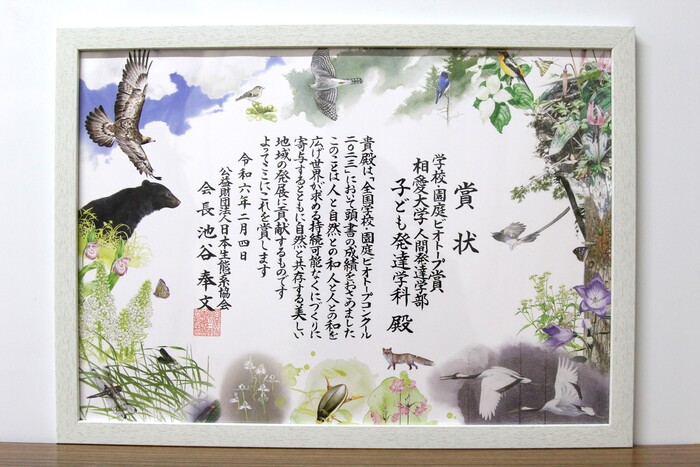 賞状
学校・園庭ビオトープ賞
相愛大学人間発達学部
子ども発達学科 殿
貴殿は、「全国学校・園庭ビオトープコンクール
二〇二三」において頭書の成績をおさめました
このことは人と自然との和人と人との和を
広げ世界が求める持続可能なくにづくりに
寄与するとともに自然と共存する美しい
地域の発展に貢献するものです
よってここにこれを賞します
令和六年二月四日
公益財団法人日本生態系協会
会長 池谷奉文